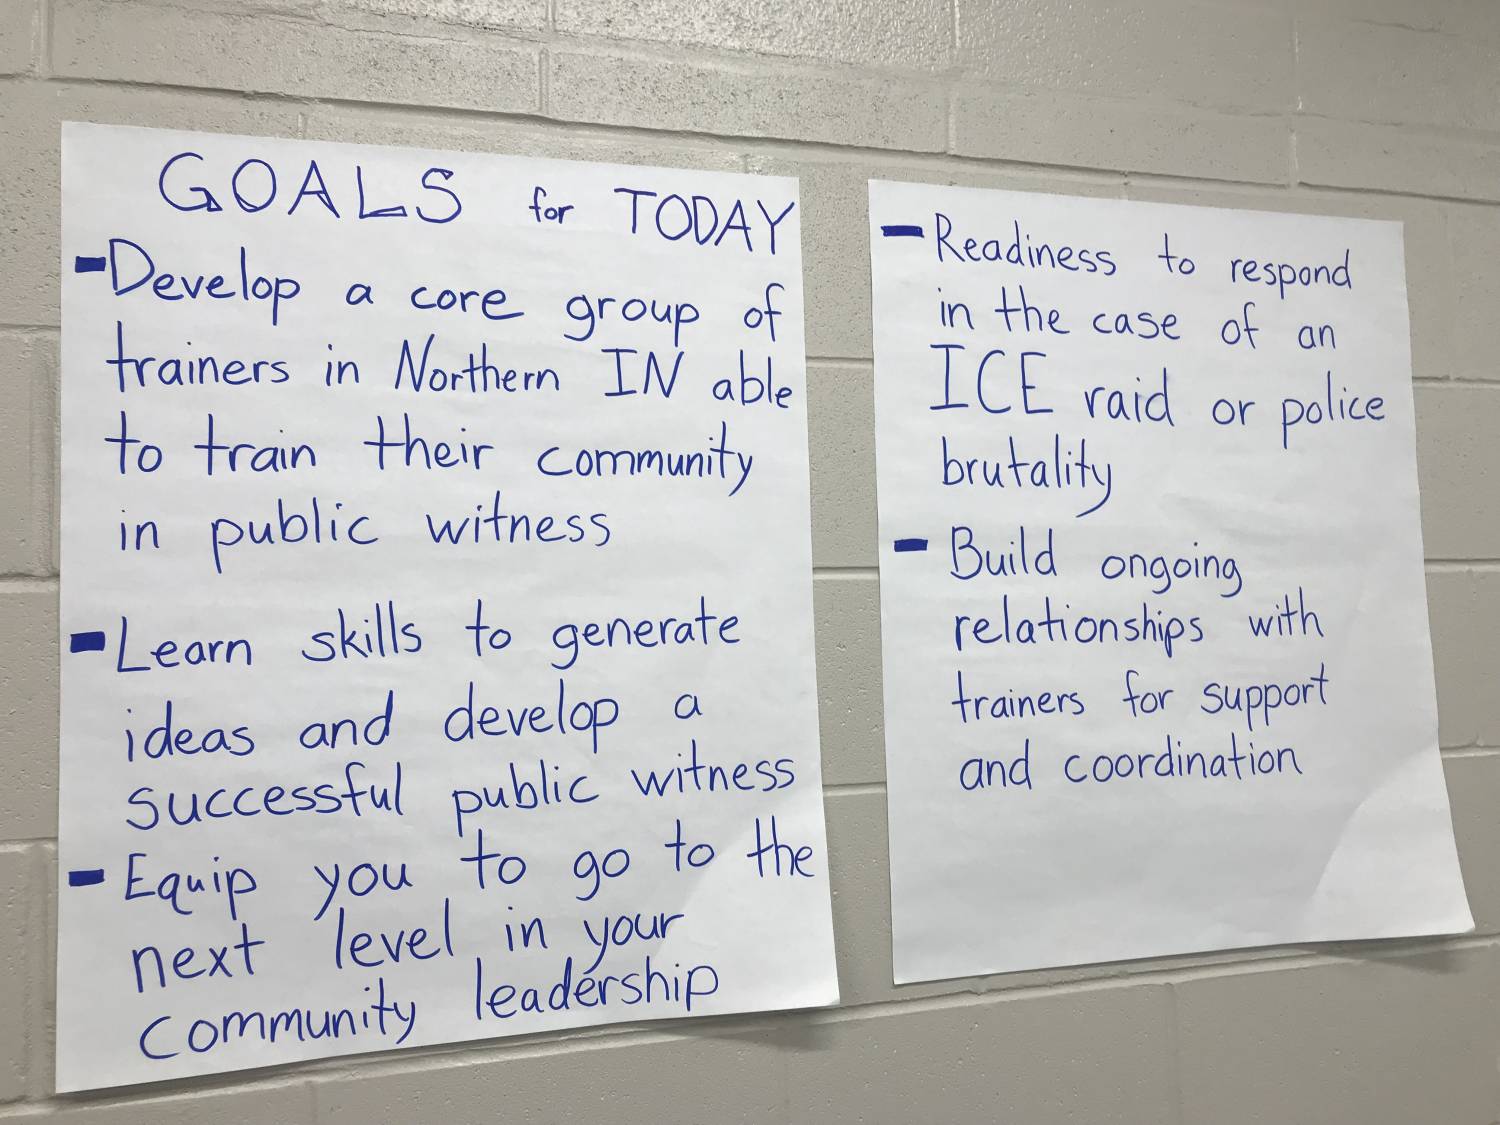 GOALS for TODAY
- Develop a core group of
trainers in Northern IN able
to train their community
in public witness
- Learn skills to generate
ideas and develop a
successful public witness
- Equip you to go to the
next level in your
community leadership
- Readiness to respond
in the case of an
ICE raid or police
brutality
- Build ongoing
relationships with
trainers for support
and coordination